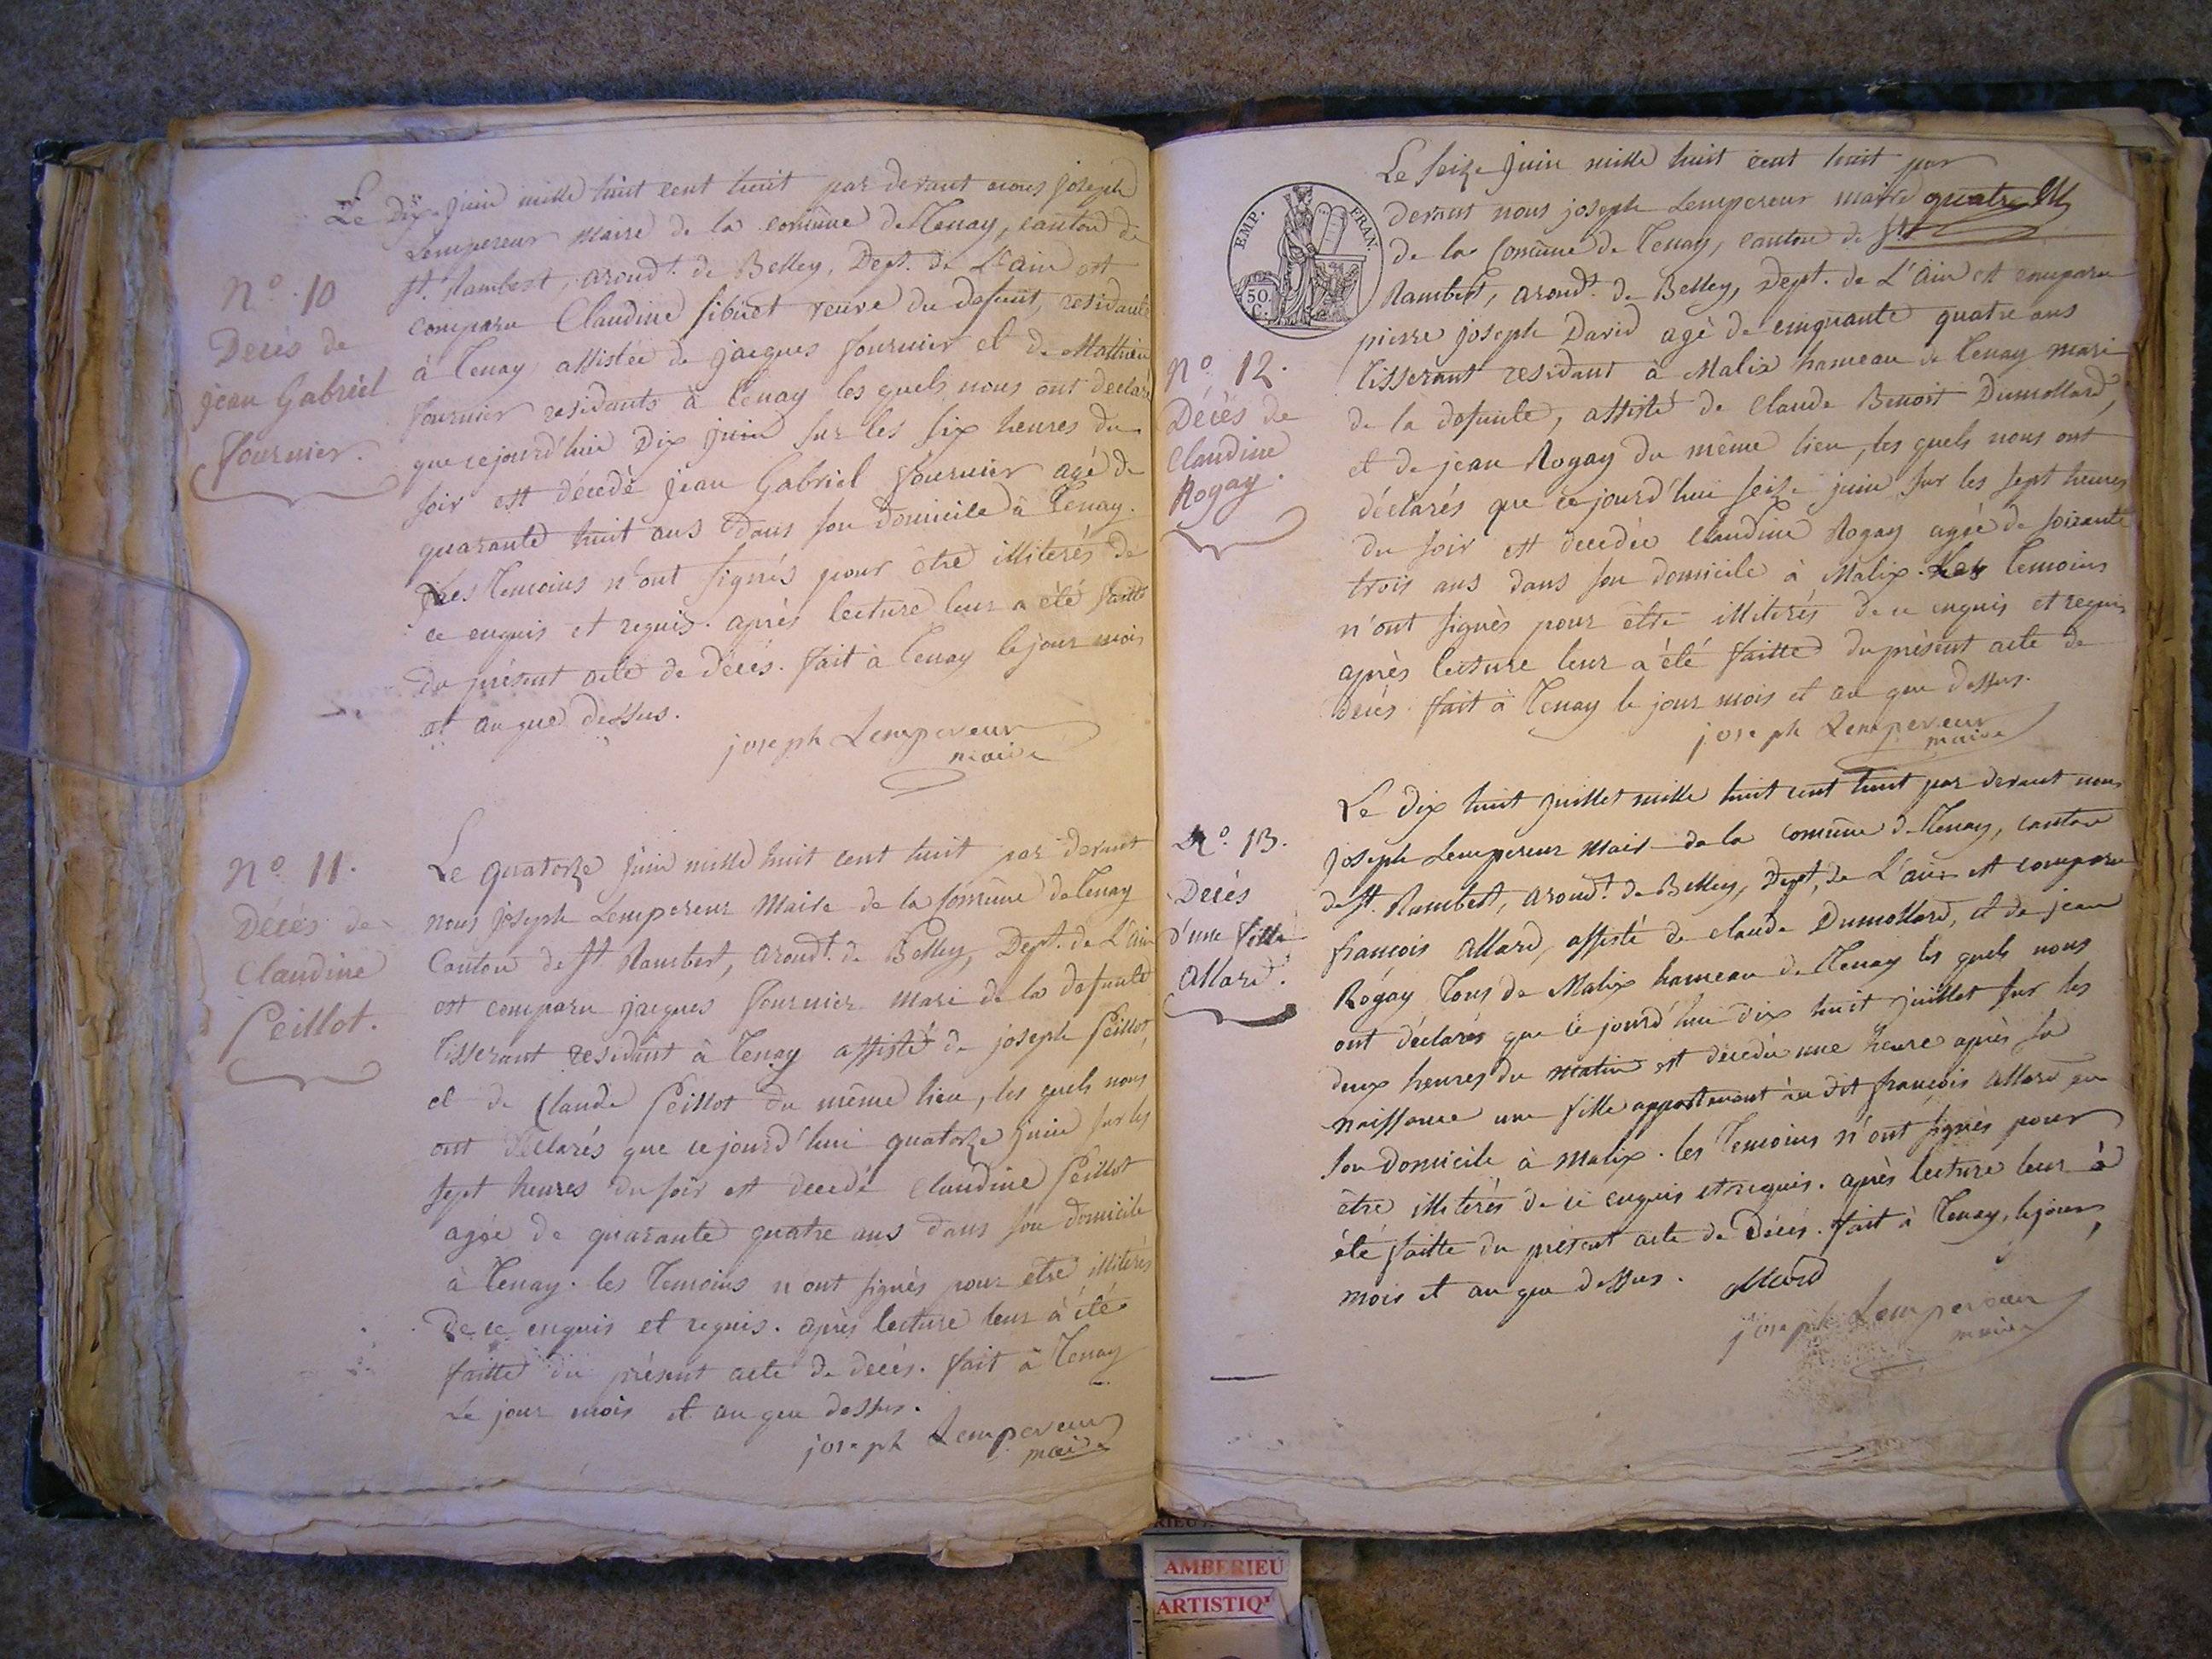 Le Dix Juin mille huit cent huit par devant nous joseph
Lempereur maire de la comune de Tenay, canton de
St. Rambert, arondt. de Belley, Dept. de L'ain est
comparu Claudine sibuet veuve du defunt, residante
à Tenay assistée de jacques fournier et de Mathieu
fournier residants à Tenay les quels nous ont declaré
que cejourd'hui Dix juin sur les six heures du
soir est décedé jean Gabriel fournier agé de
quarante huit ans dans son domicile à Tenay.
Les Temoins n'ont signés pour être illiterés de
ce enquis et requis. après lecture leur a été faitte
du présent acte de décès. fait à Tenay le jour mois
et an que dessus.
joseph Lempereur
maire
No. 10
Decès de
jean Gabriel
fournier.
No. 11.
Décès de
Claudine
Peillot.
Le quatorze juin mille huit cent huit par devant
nous joseph Lempereur Maire de la comune de Tenay
Canton de St. Rambert, arondt. de Belley, Dept. de L'ain
est comparu jacques fournier mari de la defunte
Tisserant residant à Tenay assisté de joseph Peillot,
et de Claude Peillot du même lieu, les quels nous
ont déclarés que cejourd'hui quatorze juin sur les
sept heures du soir est decedé Claudine Peillot
agée de quarante quatre ans dans son domicile
à Tenay. les Temoins n'ont signés pour etre illiterés
de ce enquis et requis. après lecture leur à été
faitte du présent acte de decès. fait à Tenay
Le jour mois et an que dessus.
joseph Lempereur
maire
EMP. FRAN.
50.
C.
Le seize juin mille huit cent huit par
devant nous joseph Lempereur maire
de la comune de Tenay, canton de St
Rambert, arondt. de Belley, Dept. de L'ain est comparu
pierre joseph David agé de cinquante quatre ans
Tisserant residant à Malix hameau de Tenay mari
de la defunte, assisté de claude Benoit Dumollard,
et de jean Rogay du même lieu, les quels nous ont
déclarés que cejourd'hui seize juin sur les sept heures
du soir est decedée Claudine Rogay agée de soixante
trois ans dans son domicile à Malix. Les Temoins
n'ont signés pour etre illiterés de ce enquis et requis
après lecture leur a été faitte du présent acte de
decès fait à Tenay le jour mois et an que dessus.
joseph Lempereur
maire
No. 12.
Décès de
Claudine
Rogay.
No. 13.
Decès
d'une fille
allard.
Le dix huit juillet mille huit cent huit par devant nous
joseph Lempereur Maire de la comune de Tenay, canton
de St. Rambert, arondt. de Belley, Dept, de L'ain est comparu
françois allard, assisté de claude Dumollard, et de jean
Rogay Tous de Malix hameau de Tenay les quels nous
ont déclarés que cejourd'hui dix huit juillet sur les
deux heures du matin est décedée une heure après sa
naissance une fille appartenant au dit françois allard en
son domicile à malix. les Temoins n'ont signés pour
etre illiterés de ce enquis et requis. après lecture leur à
été faitte du présent acte de Décès. fait à Tenay, le jour,
mois et an que dessus. allard
joseph Lempereur
maire
AMBERIEU
ARTISTIQ